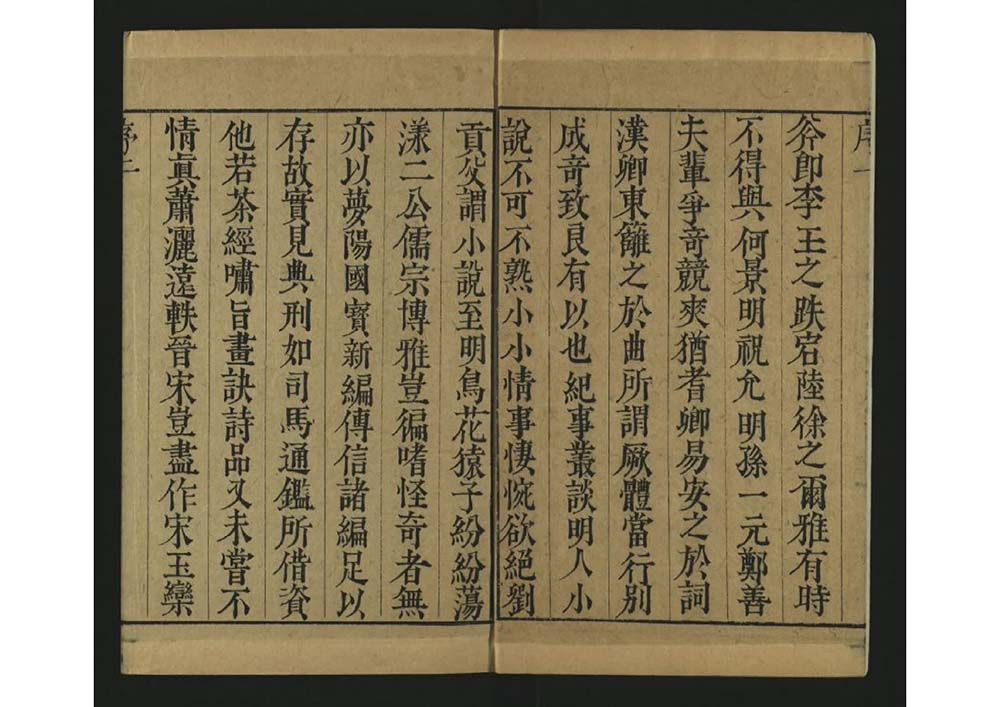 序一
斧即李王之跌宕陸徐之爾雅有時
不得與何景明祝允明孫一元鄭善
夫輩爭奇競爽猶耆卿易安之於詞
漢卿東籬之於曲所謂厥體當行别
成奇致良有以也紀事叢談明人小
說不可不熟小小情事悽惋欲絕劉
貢父謂小說至明鳥花猿子紛紛蕩
漾二公儒宗博雅豈徧嗜怪奇者無
亦以夢陽國寳新編傳信諸編足以
存故實見典刑如司馬通鑑所借資
他若茶經嘯旨畫訣詩品又未嘗不
情眞蕭灑遠軼晉宋豈盡作宋玉欒
序二